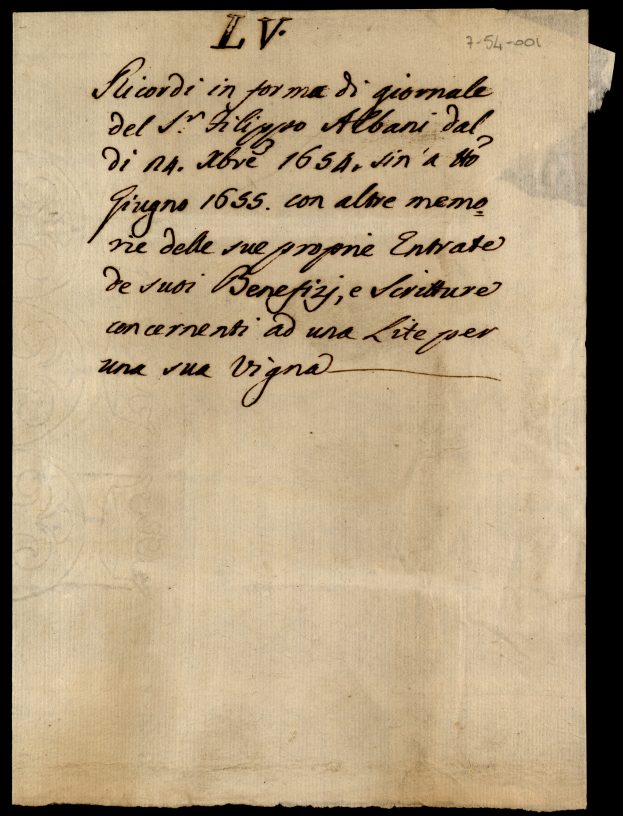 LV.
7-54-001
Ricordi in forma di giornale
del S.r Filippo Albani dal
di 14. Xbre 1654. sin'a tto
Giugno 1655. con altre memo=
rie delle sue proprie Entrate
de suoi Benefizj, e Scritture
concernenti ad una Lite per
una sua Vigna